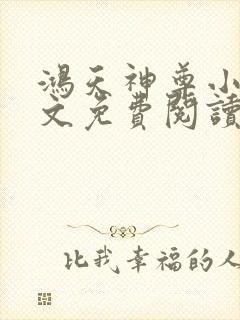 鴻天神尊小
文免費閱讀
比我幸福的人